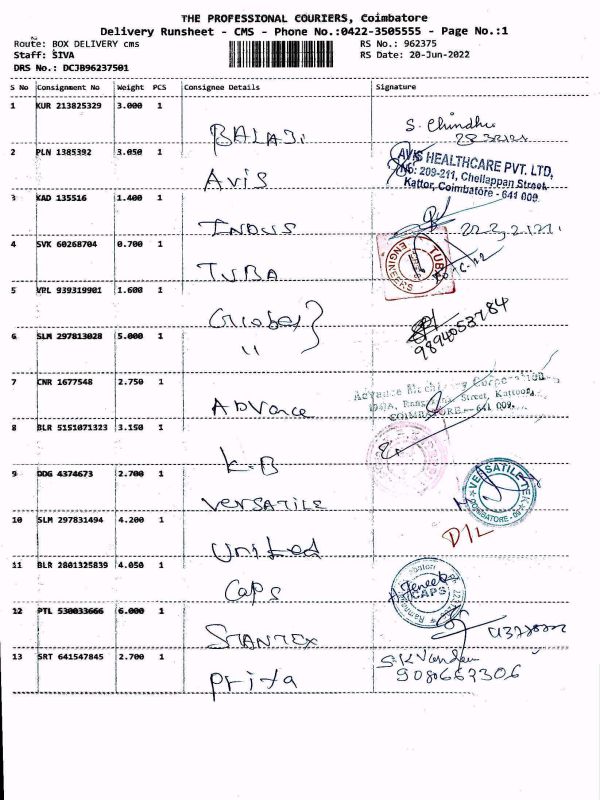 THE PROFESSIONAL COURIERS, Coimbatore
Delivery Runsheet - CMS - Phone No.:0422-3505555 - Page No.:1
Route: BOX DELIVERY cms
RS No.: 962375
Staff: SIVA
RS Date: 20-Jun-2022
DRS No.: DCJB96237501
S No Consignment No Weight PCS Consignee Details Signature
1 KUR 213825329 3.000 1
BALAJI
S. Chindhu
2 PLN 1385392 3.050 1
AVIS
AVIS HEALTHCARE PVT. LTD,
No: 209-211, Chellappan Street,
Kattor, Coimbatore - 641 009.
3 KAD 135516 1.400 1
INDUS
4 SVK 60268704 0.700 1
TUBA
TUBA ENGINEERS
5 VRL 939319901 1.600 1
Global
9894053784
6 SLM 297813028 5.000 1
"
7 CNR 1677548 2.750 1
ADVance
Advance Machinery Corporation
Street, Kattoor,
COIMBATORE - 641 009.
8 BLR 5151071323 3.150 1
K.B
9 DDG 4374673 2.700 1
VERSATILE
VERSATILE TEK
COIMBATORE - 09
10 SLM 297831494 4.200 1
United
D/L
11 BLR 2801325839 4.050 1
Caps
CAPS
12 PTL 530033666 6.000 1
STANTEX
13 SRT 641547845 2.700 1
Priya
S.K Vandan
9080667306